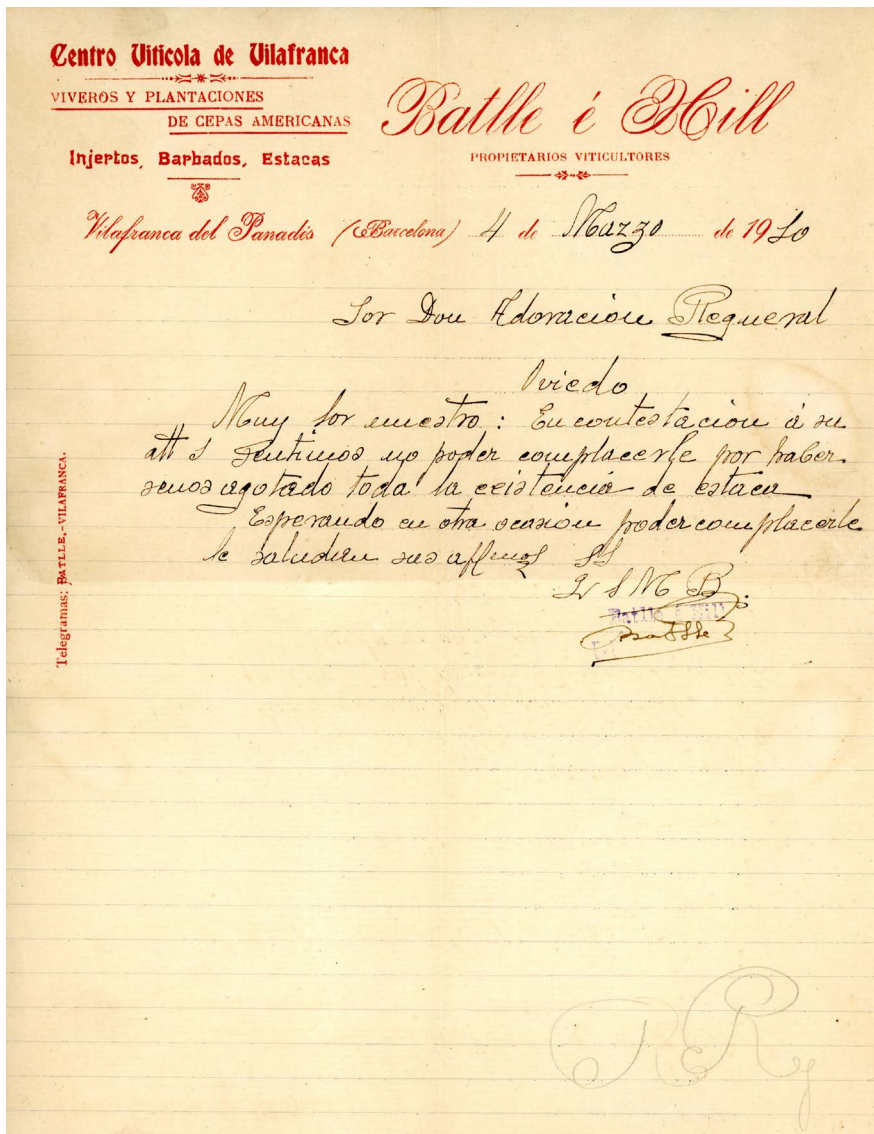 Centro Vitícola de Vilafranca
VIVEROS Y PLANTACIONES
DE CEPAS AMERICANAS
Injertos, Barbados, Estacas
Batlle é Hill
PROPIETARIOS VITICULTORES
Vilafranca del Panadés (Barcelona) 4 de Marzo de 1910
Sor Don Adoración Regueral
Oviedo
Muy Sor nuestro: En contestación á su
att S sentimos no poder complacerle por haber
senos agotado toda la existencia de estaca
Esperando en otra ocasión poder complacerle
le saludan sus affmos SS
Q S M B.
Batlle é Hill
Batlle
Telegramas: BATLLE.-VILAFRANCA.